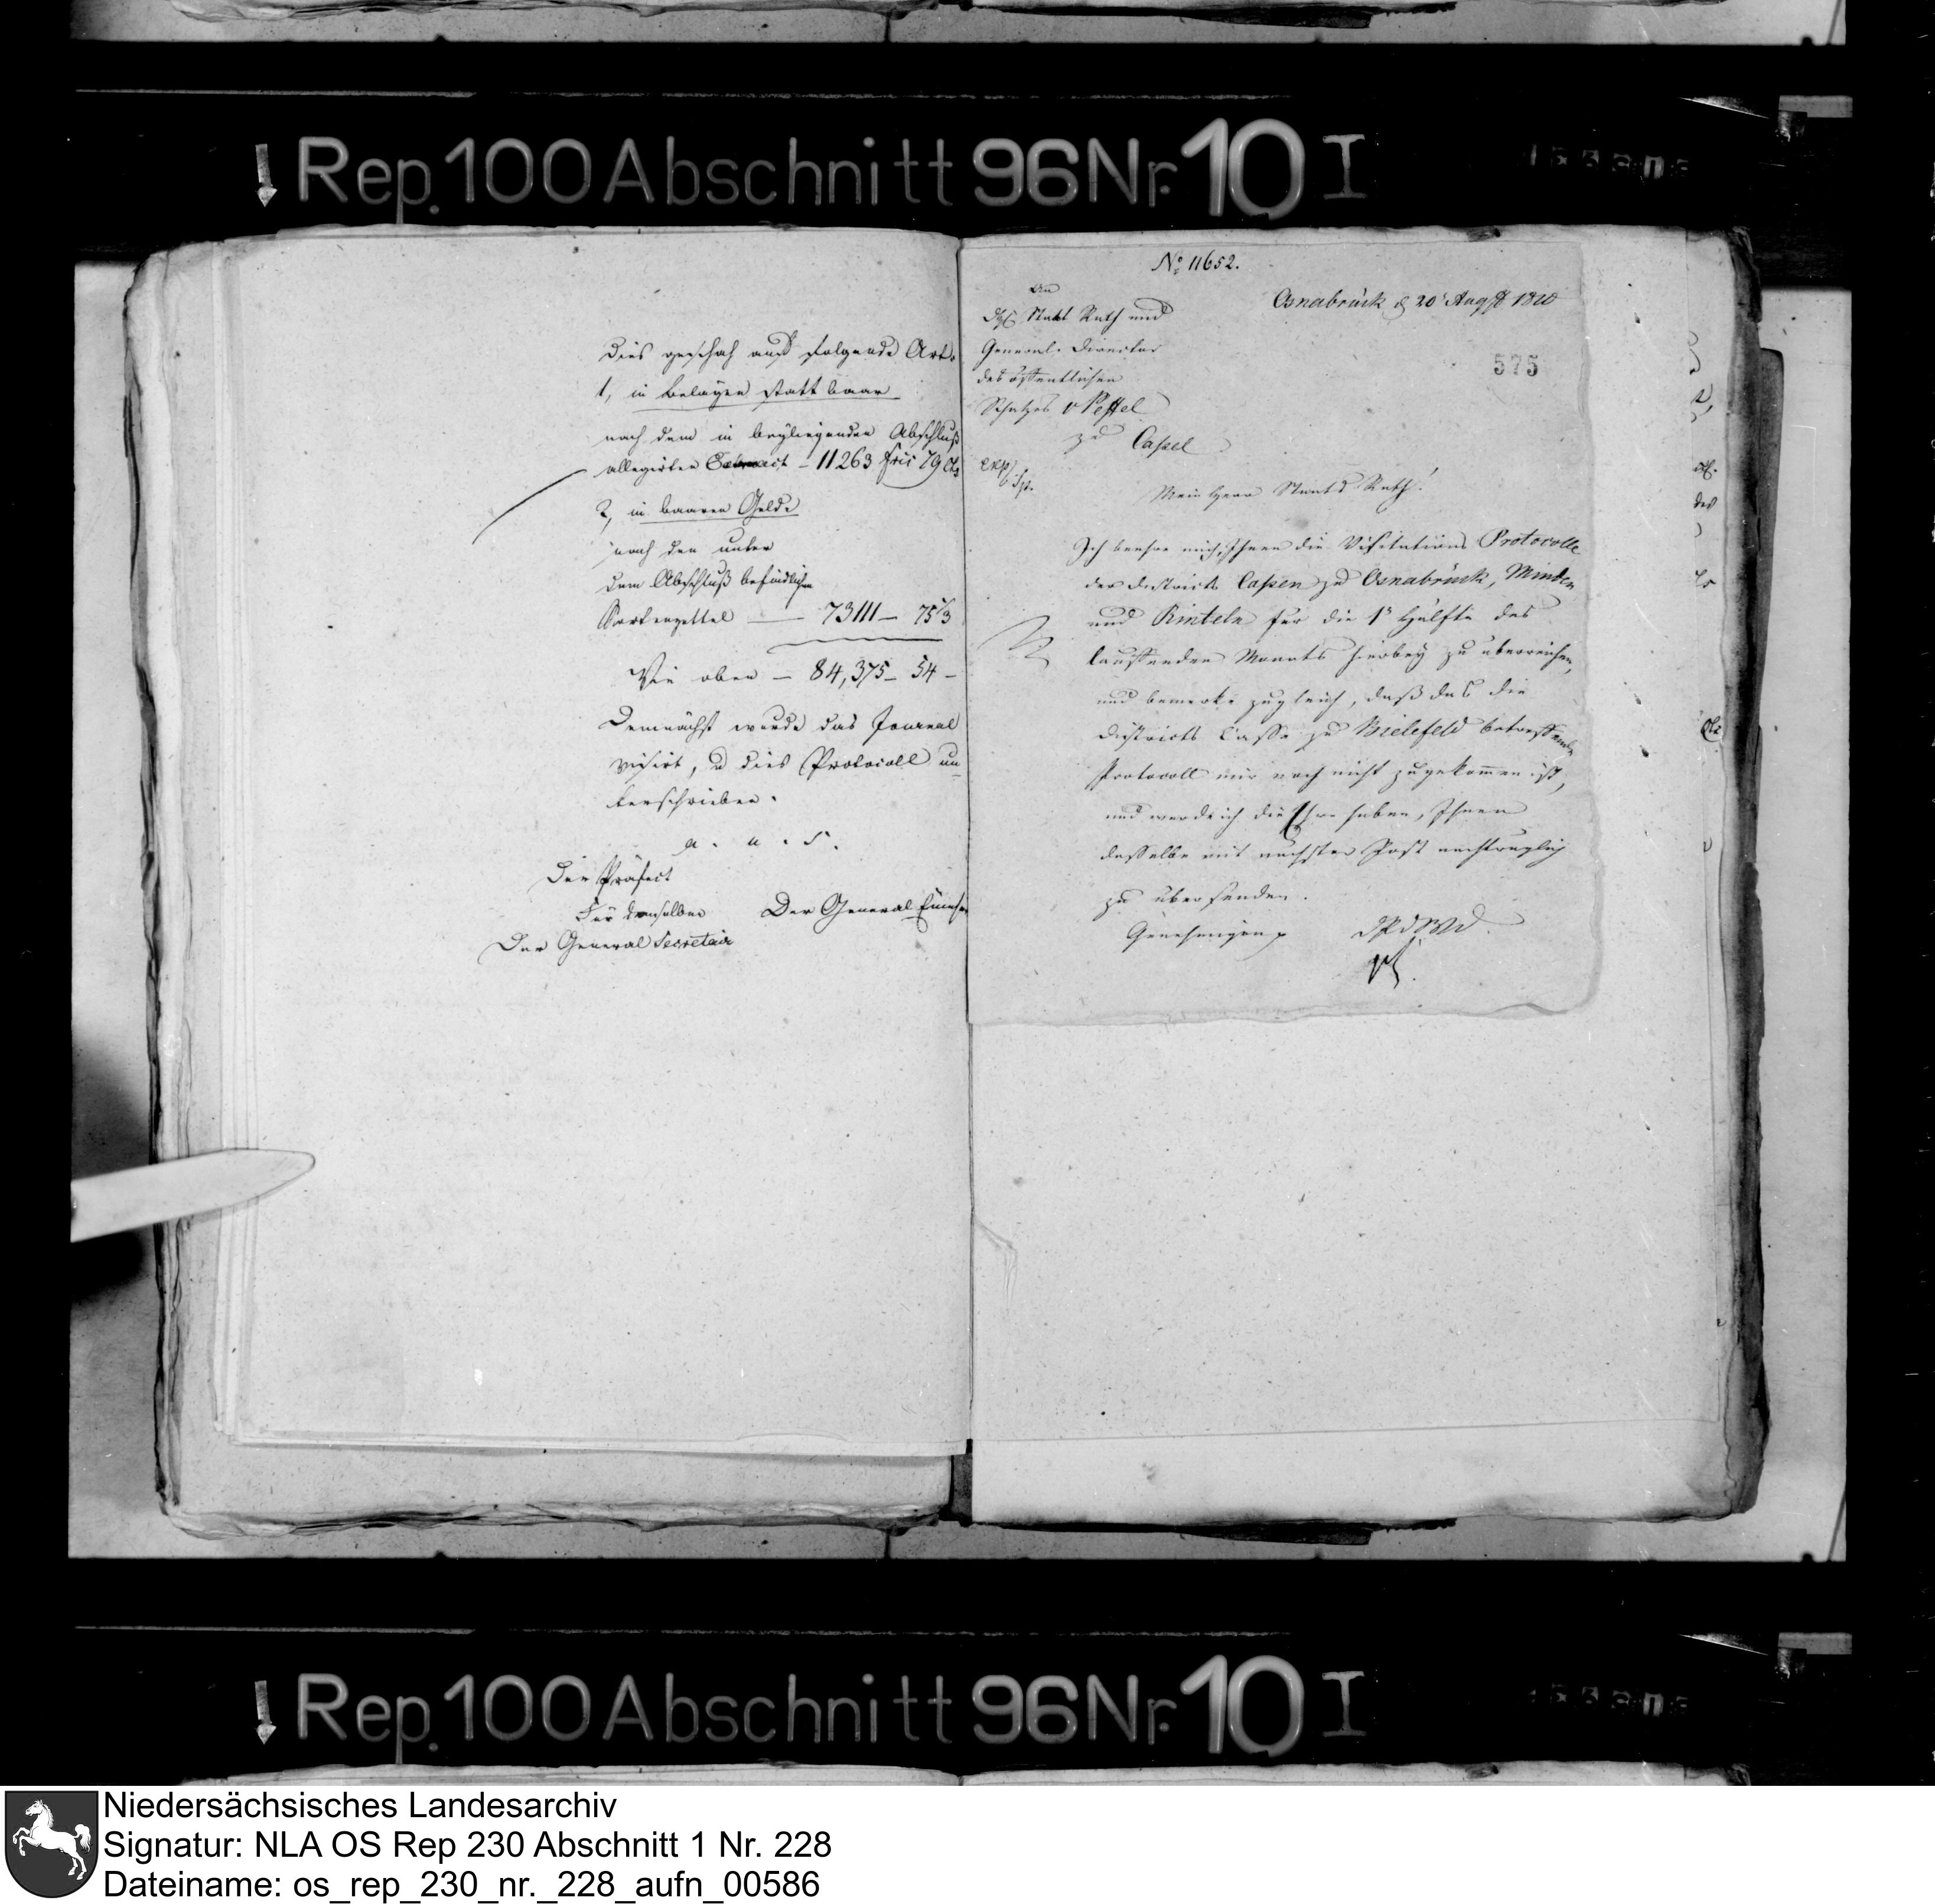 Rep. 100 Abschnitt 96 Nr. 10 I
Dies geschah auf folgende Art.
1, in Belägen statt baar
nach dem in beyliegenden Abschluß
allegirten Extract – 11263 frcs 79 Cts
2, in baaren Gelde
nach den unter
dem Abschluß befindlichen
Sortenzettel — 73111 – 75
Wie oben – 84,375 – 54 –
Demnächst wurde das Journal
visirt, u dies Protocoll un-
terschrieben.
a. u. s.
Der Präfect
Für denselben
Der General Secretair
Der General Einehm
No 11652.
Osnabrück d 20 Augst 1810
575
An
Staat Rath und
General-Director
des öffentlichen
Schatzes v Pestel
zu Cassel
exp
Mein Herr Staats Rath!
Ich beehre mich, Ihnen die Visitations Protocolle
der Districts Cassen zu Osnabrück, Minden
und Rinteln für die 1e Hälfte des
lauffenden Monats hierbey zu überreichen,
und bemerke zugleich, daß das die
Districts Casse zu Bielefeld betreffende
Protocoll mir noch nicht zugekommen ist,
und werde ich die Ehre haben, Ihnen
dasselbe mit nächster Post nachträglich
zu übersenden.
Genehmigen p
DPdWD.
Rep. 100 Abschnitt 96 Nr. 10 I
Niedersächsisches Landesarchiv
Signatur: NLA OS Rep 230 Abschnitt 1 Nr. 228
Dateiname: os_rep_230_nr._228_aufn_00586